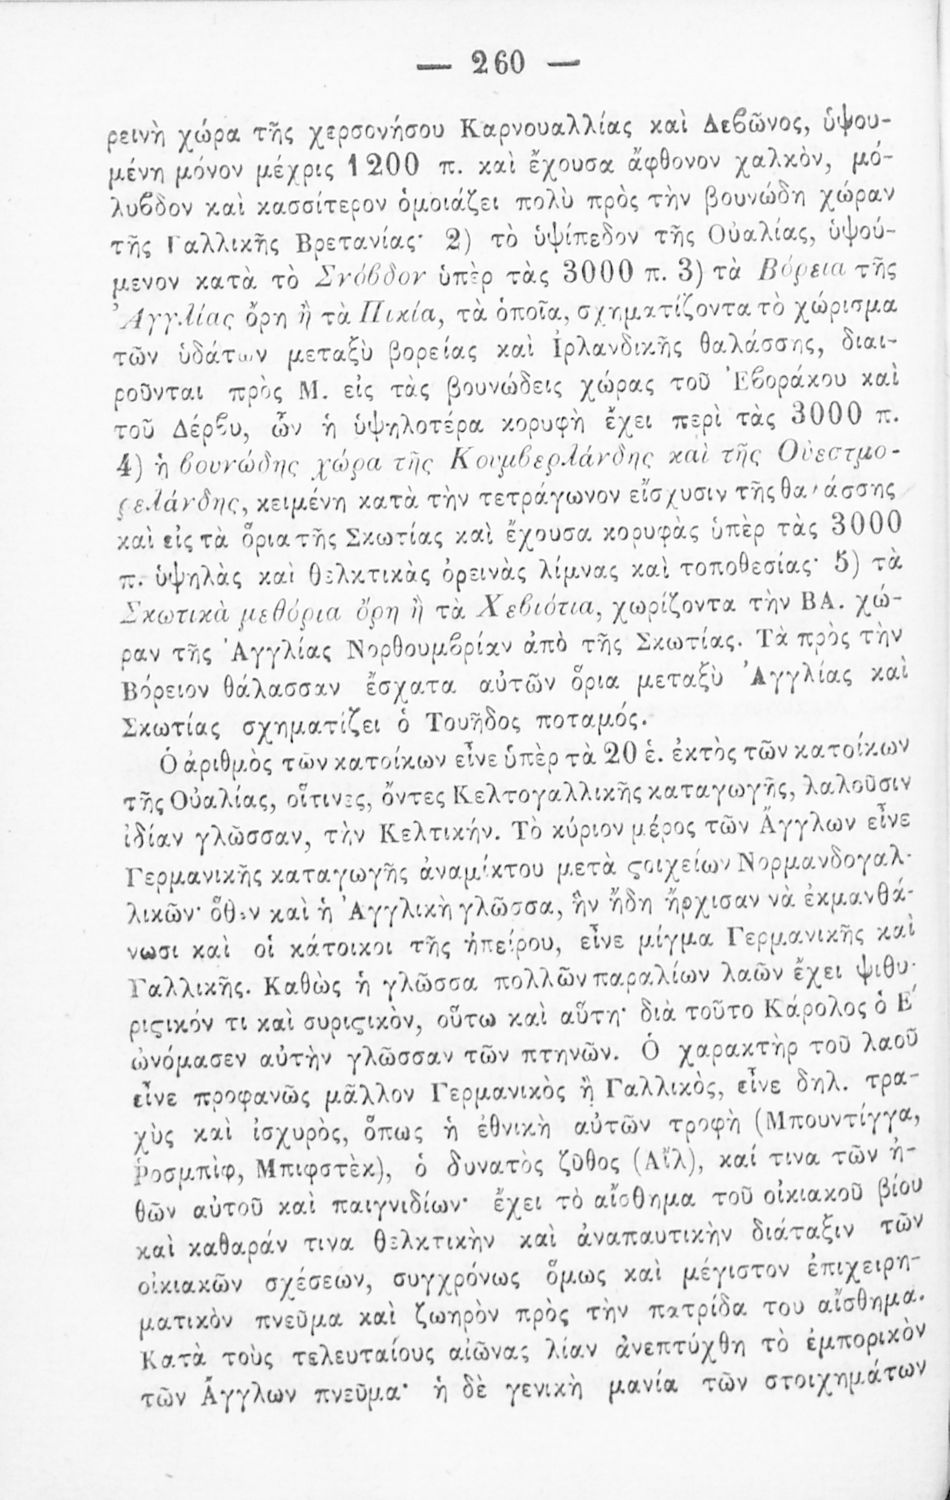 — 260 —
ρεινὴ χώρα τῆς χερσονήσου Καρνουαλλίας καὶ Δεβῶνος, ὑψου-
μένη μόνον μέχρις 1200 π. καὶ ἔχουσα ἄφθονον χαλκὸν, μό-
λυβδον καὶ κασσίτερον ὁμοιάζει πολὺ πρὸς τὴν βουνώδη χώραν
τῆς Γαλλικῆς Βρετανίας· 2) τὸ ὑψίπεδον τῆς Οὐαλίας, ὑψού-
μενον κατὰ τὸ Σνόβδον ὑπὲρ τὰς 3000 π. 3) τὰ Βόρεια τῆς
Ἀγγλίας ὄρη ἢ τὰ Πικία, τὰ ὁποῖα, σχηματίζοντα τὸ χώρισμα
τῶν ὑδάτων μεταξὺ βορείας καὶ Ἰρλανδικῆς θαλάσσης, διαι-
ροῦνται πρὸς Μ. εἰς τὰς βουνώδεις χώρας τοῦ Ἐβοράκου καὶ
τοῦ Δέρβυ, ὧν ἡ ὑψηλοτέρα κορυφὴ ἔχει περὶ τὰς 3000 π.
4) ἡ βουνώδης χώρα τῆς Κουμβερλάνδης καὶ τῆς Οὐεστμο-
ρελάνδης, κειμένη κατὰ τὴν τετράγωνον εἴσχυσιν τῆς θαλάσσης
καὶ εἰς τὰ ὅρια τῆς Σκωτίας καὶ ἔχουσα κορυφὰς ὑπὲρ τὰς 3000
π. ὑψηλὰς καὶ θελκτικὰς ὀρεινὰς λίμνας καὶ τοποθεσίας· 5) τὰ
Σκωτικὰ μεθόρια ὄρη ἢ τὰ Χεβιότια, χωρίζοντα τὴν ΒΑ. χώ-
ραν τῆς Ἀγγλίας Νορθουμβρίαν ἀπὸ τῆς Σκωτίας. Τὰ πρὸς τὴν
Βόρειον θάλασσαν ἔσχατα αὐτῶν ὅρια μεταξὺ Ἀγγλίας καὶ
Σκωτίας σχηματίζει ὁ Τουῆδος ποταμός.
Ὁ ἀριθμὸς τῶν κατοίκων εἶνε ὑπὲρ τὰ 20 ἑ. ἐκτὸς τῶν κατοίκων
τῆς Οὐαλίας, οἵτινες, ὄντες Κελτογαλλικῆς καταγωγῆς, λαλοῦσιν
ἰδίαν γλῶσσαν, τὴν Κελτικήν. Τὸ κύριον μέρος τῶν Ἄγγλων εἶνε
Γερμανικῆς καταγωγῆς ἀναμίκτου μετὰ ϛοιχείων Νορμανδογαλ-
λικῶν· ὅθεν καὶ ἡ Ἀγγλικὴ γλῶσσα, ἣν ἤδη ἤρχισαν νὰ ἐκμανθά-
νωσι καὶ οἱ κάτοικοι τῆς ἠπείρου, εἶνε μίγμα Γερμανικῆς καὶ
Γαλλικῆς. Καθὼς ἡ γλῶσσα πολλῶν παραλίων λαῶν ἔχει ψιθυ-
ριϛικόν τι καὶ συριϛικὸν, οὕτω καὶ αὕτη· διὰ τοῦτο Κάρολος ὁ Ε΄
ὠνόμασεν αὐτὴν γλῶσσαν τῶν πτηνῶν. Ὁ χαρακτὴρ τοῦ λαοῦ
εἶνε προφανῶς μᾶλλον Γερμανικὸς ἢ Γαλλικὸς, εἶνε δηλ. τρα-
χὺς καὶ ἰσχυρὸς, ὅπως ἡ ἐθνικὴ αὐτῶν τροφὴ (Μπουντίγγα,
Ῥοσμπὶφ, Μπιφστὲκ), ὁ δυνατὸς ζῦθος (Αἲλ), καί τινα τῶν ἠ-
θῶν αὐτοῦ καὶ παιγνιδίων· ἔχει τὸ αἴσθημα τοῦ οἰκιακοῦ βίου
καὶ καθαράν τινα θελκτικὴν καὶ ἀναπαυτικὴν διάταξιν τῶν
οἰκιακῶν σχέσεων, συγχρόνως ὅμως καὶ μέγιστον ἐπιχειρη-
ματικὸν πνεῦμα καὶ ζωηρὸν πρὸς τὴν πατρίδα του αἴσθημα.
Κατὰ τοὺς τελευταίους αἰῶνας λίαν ἀνεπτύχθη τὸ ἐμπορικὸν
τῶν Ἄγγλων πνεῦμα· ἡ δὲ γενικὴ μανία τῶν στοιχημάτων